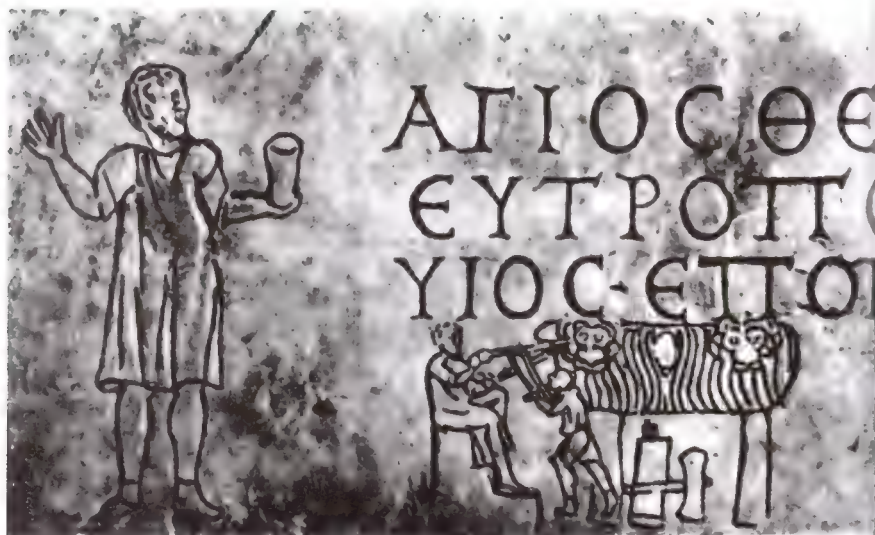 ΑΓΙΟϹ ΘΕ
ΕΥΤΡΟΠ
ΥΙΟϹ·ΕΠΟ